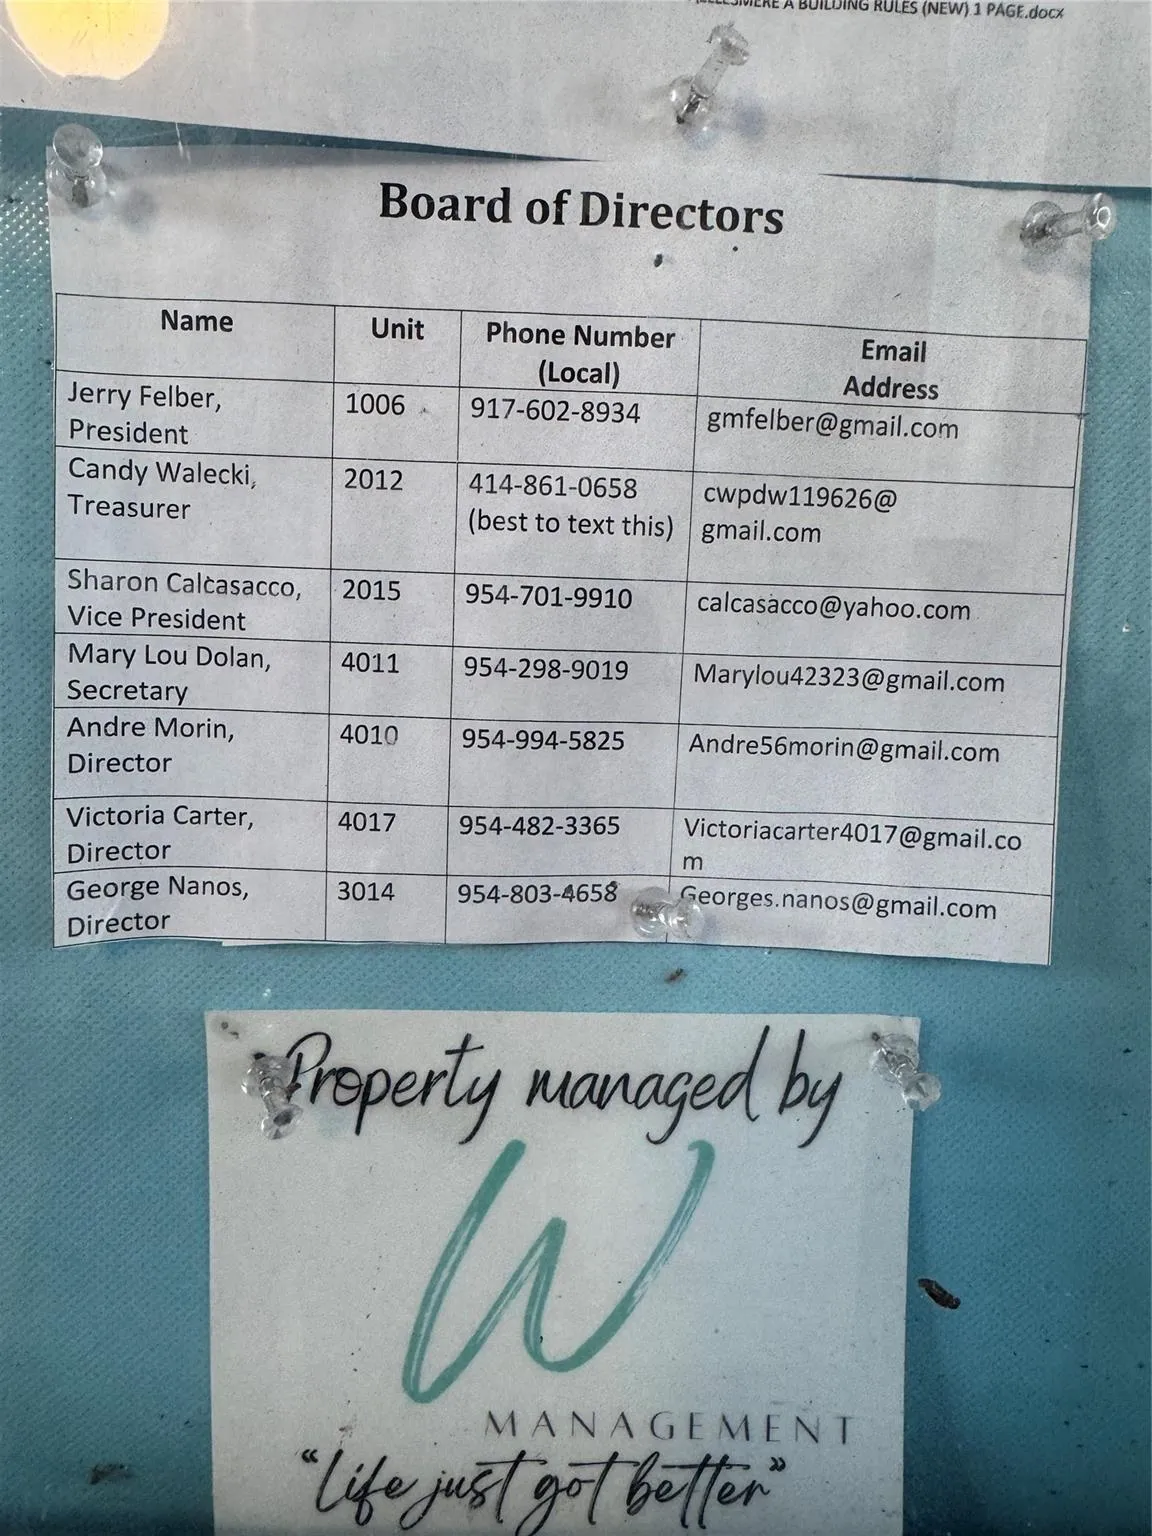 A BUILDING RULES (NEW) 1 PAGE.docx
Board of Directors
Name Unit Phone Number (Local) Email Address
Jerry Felber, President 1006 917-602-8934 gmfelber@gmail.com
Candy Walecki, Treasurer 2012 414-861-0658 (best to text this) cwpdw119626@ gmail.com
Sharon Calcasacco, Vice President 2015 954-701-9910 calcasacco@yahoo.com
Mary Lou Dolan, Secretary 4011 954-298-9019 Marylou42323@gmail.com
Andre Morin, Director 4010 954-994-5825 Andre56morin@gmail.com
Victoria Carter, Director 4017 954-482-3365 Victoriacarter4017@gmail.co m
George Nanos, Director 3014 954-803-4658 Georges.nanos@gmail.com
Property managed by
W
MANAGEMENT
"Life just got better"